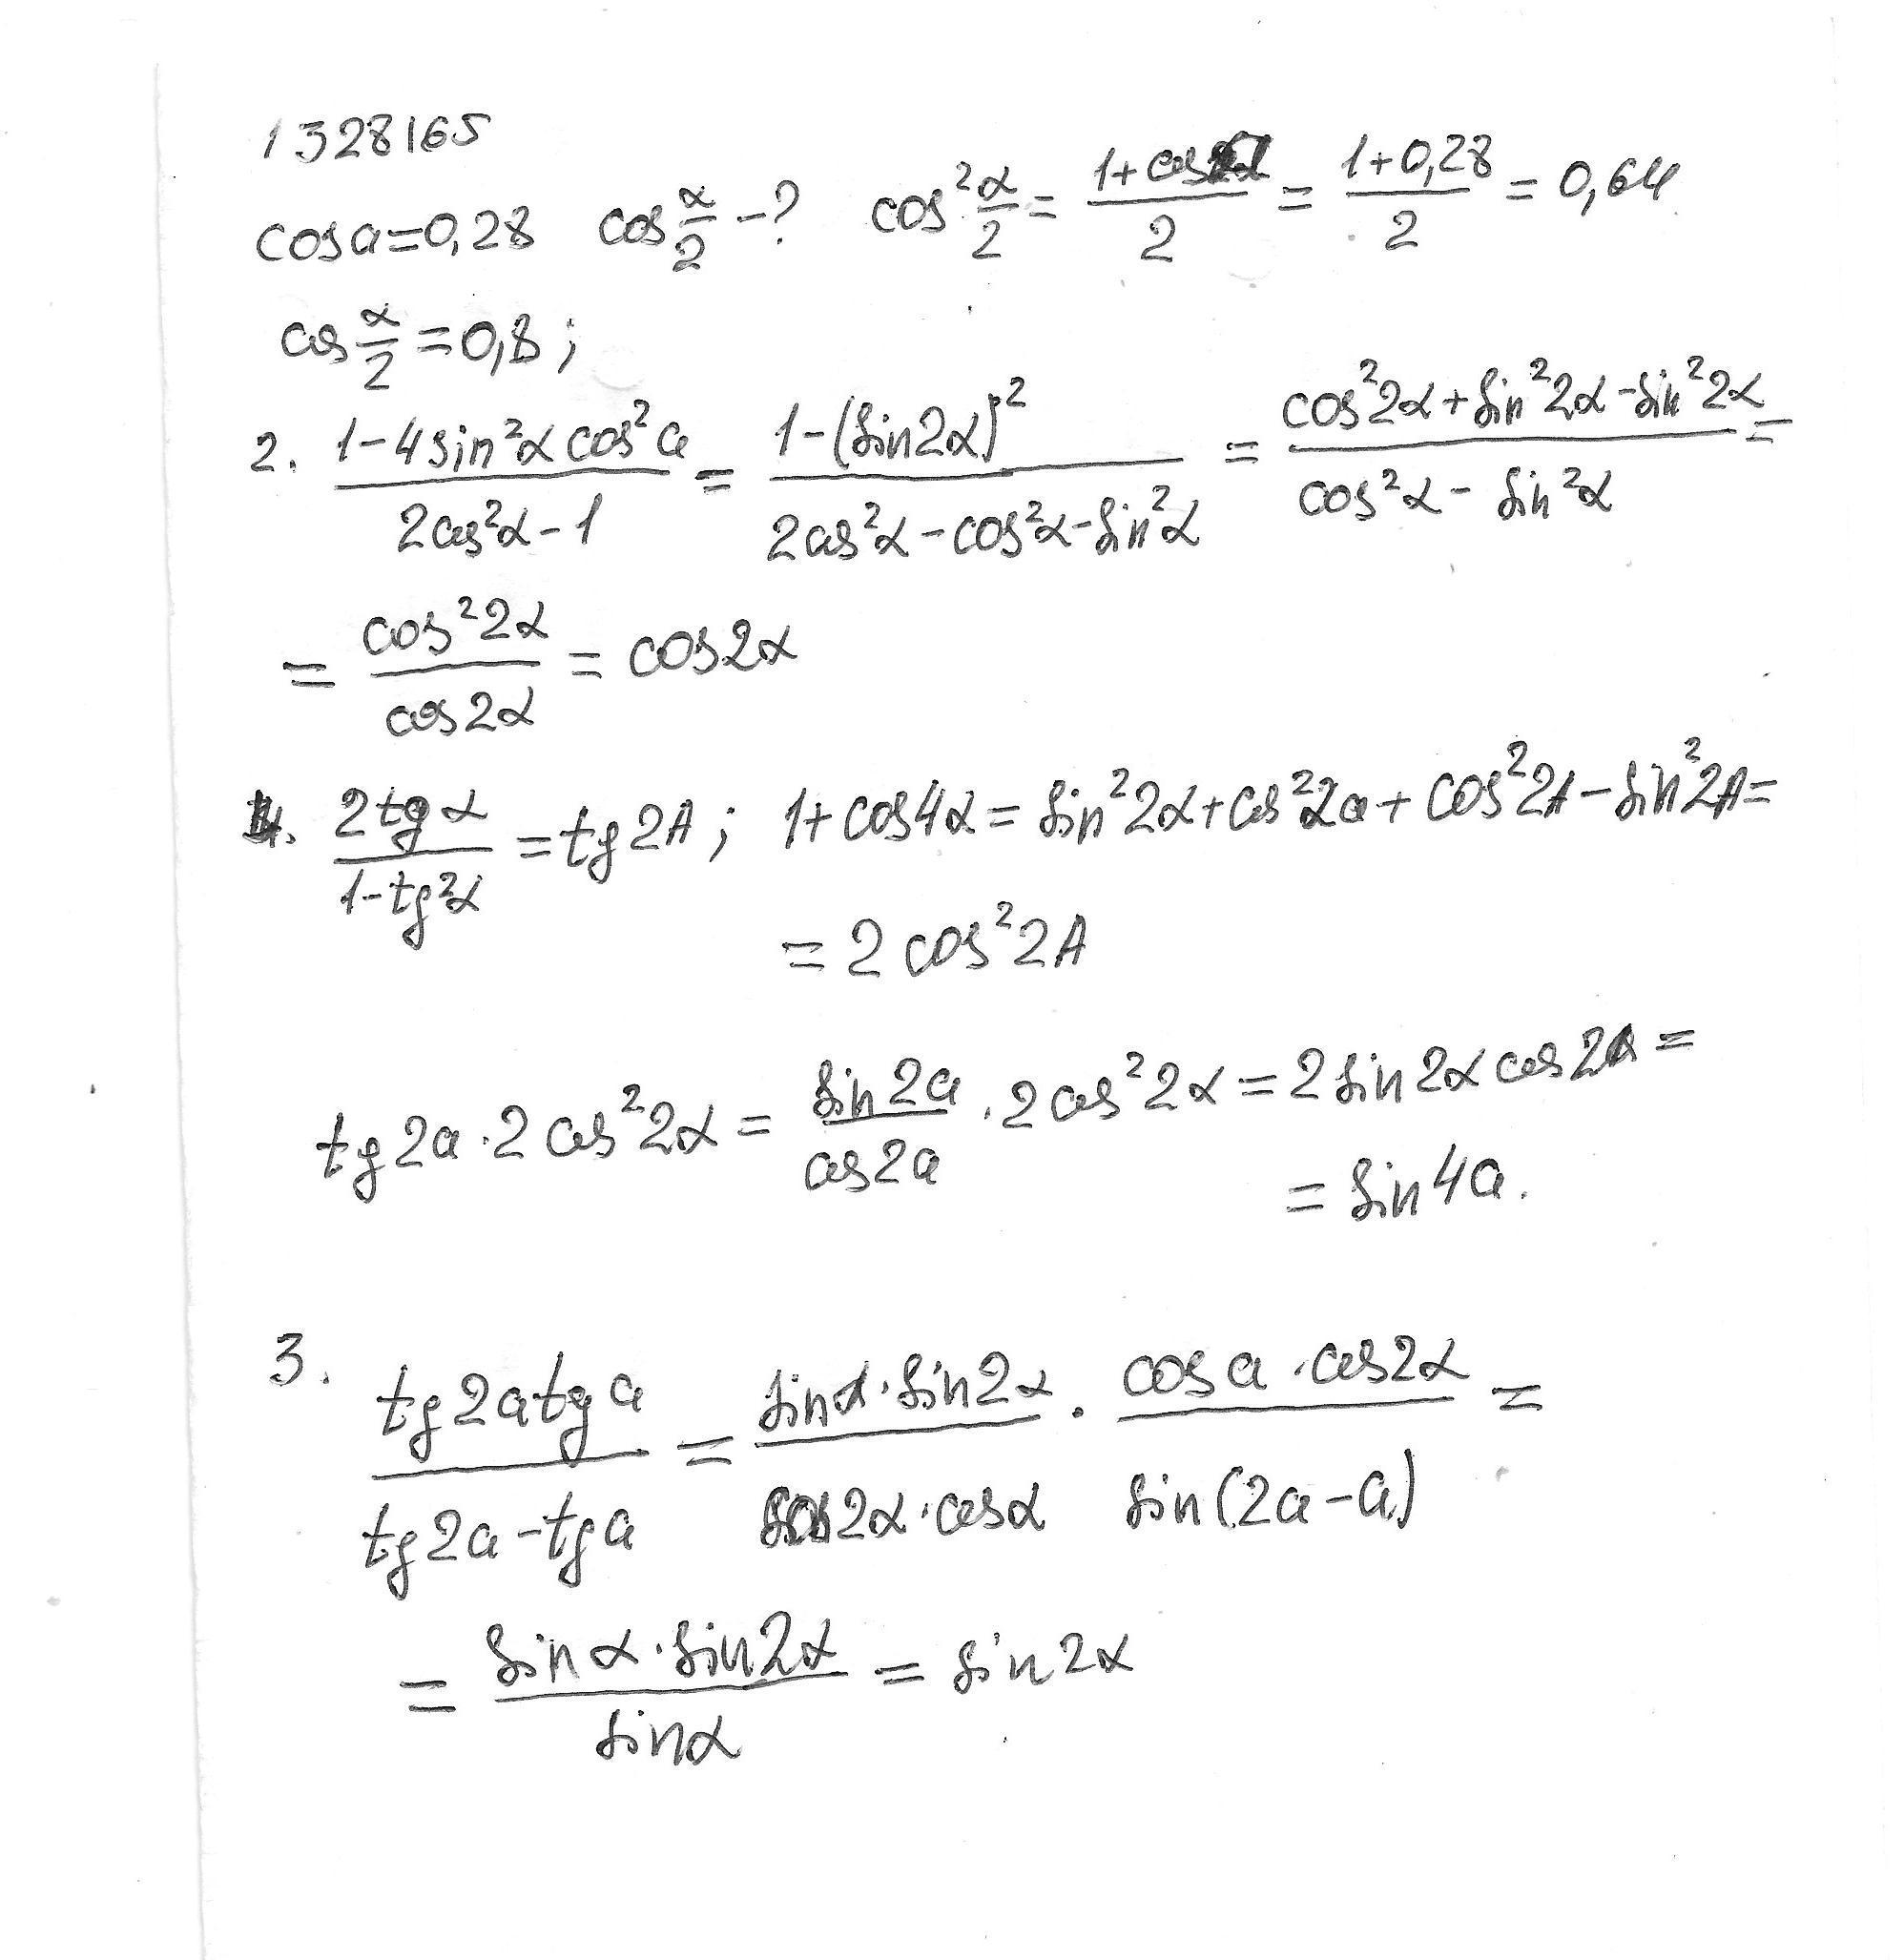 1328165
cos a = 0,28 cos α/2 - ? cos² α/2 = (1 + cos α)/2 = (1 + 0,28)/2 = 0,64
cos α/2 = 0,8 ;
2. (1 - 4 sin²α cos²a)/(2cos²α - 1) = (1 - (sin2α)²)/(2cos²α - cos²α - sin²α) = (cos²2α + sin²2α - sin²2α)/(cos²α - sin²α) =
= cos²2α/cos2α = cos2α
4. 2tg α/(1 - tg²α) = tg 2A ; 1 + cos4α = sin²2α + cos²2a + cos²2A - sin²2A =
= 2 cos²2A
tg 2a · 2 cos²2α = sin 2a/cos 2a · 2 cos²2α = 2 sin 2α cos 2A =
= sin 4a.
3. (tg 2a tg a)/(tg 2a - tg a) = (sin α · sin 2α)/(cos 2α · cos α) · (cos a · cos 2α)/(sin(2a - a)) =
= (sin α · sin 2α)/(sin α) = sin 2α